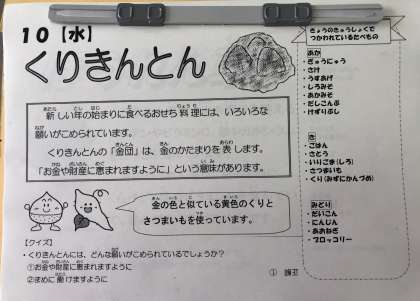 10【水】
くりきんとん
新しい年の始まりに食べるおせち料理には、いろいろな
願いがこめられています。
くりきんとんの「金団」は、金のかたまりを表します。
「お金や財産に恵まれますように」という意味があります。
金の色と似ている黄色のくりと
さつまいもを使っています。
【クイズ】
・くりきんとんには、どんな願いがこめられているでしょうか?
①お金や財産に恵まれますように
②まめに働けますように
きょうのきゅうしょくで
つかわれているたべもの
あか
・ぎゅうにゅう
・さけ
・うすあげ
・しろみそ
・あかみそ
・だしこんぶ
・けずりぶし
き
・ごはん
・さとう
・いりごま(しろ)
・さつまいも
・くり(みずにかんづめ)
みどり
・だいこん
・にんじん
・あおねぎ
・ブロッコリー